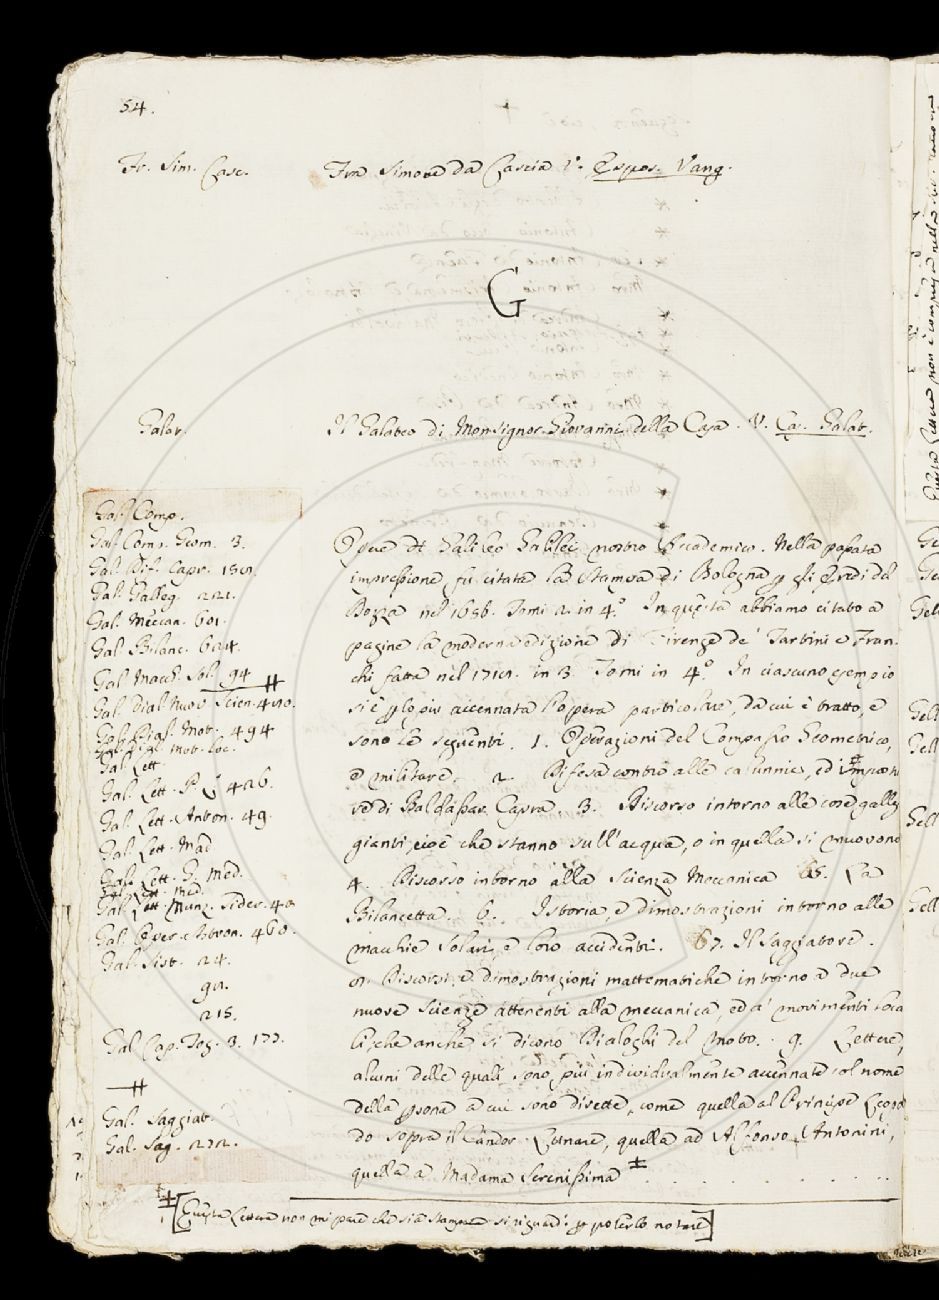 54.
Fr. Sim. Casc.
Fra Simone da Cascia V. Espos. Vang.
G
Galat.
Il Galateo di Monsignor Giovanni della Casa. V. Ca. Galat.
Gal. Comp.
Gal. Comp. Geom. 3.
Gal. Dif. Capr.
Gal. Galleg. 221.
Gal. Meccan. 601.
Gal. Bilanc. 624.
Gal. Macch. Sol. 94
Gal. Dial. Nuov. Scien.
Gal. Dial. Mot. 494
Gal. Dial. Mot. loc.
Gal. Lett.
Gal. Lett. 426.
Gal. Lett. Anton. 49.
Gal. Lett. Mad.
Gal. Lett. Med.
Gal. Lett. Med.
Gal. Lett. Nunz. Sider.
Gal. Oper. Astron. 460.
Gal. Sist. 24.
92.
215.
Gal. Cap. Tog. 3. 177.
Gal. Saggiat.
Gal. Sag. 272.
Opere di Galileo Galilei nostro Accademico. Nella passata
impressione fu citata la stampa di Bologna p gli Eredi del
Dozza nel 1656. Tomi 2. in 4.° In questa abbiamo citato a
pagine la moderna edizione di Firenze de' Tartini e Fran-
chi fatta nel in 3. Tomi in 4.° In ciascuno esempio
si è p lo più accennata l'opera particolare, da cui è tratto, e
sono le seguenti. 1. Operazioni del Compasso Geometrico,
e militare. 2. Difesa contro alle calunnie, ed impostu
re di Baldassar Capra. 3. Discorso intorno alle cose galleg
gianti, cioè che stanno sull'acqua, o in quella si muovono
4. Discorso intorno alla Scienza Meccanica 5. La
Bilancetta. 6. Istoria, e dimostrazioni intorno alle
macchie solari, e loro accidenti. 7. Il Saggiatore.
8. Discorsi, e dimostrazioni mattematiche intorno a due
nuove Scienze attenenti alla meccanica, ed a' movimenti loca
li, che anche si dicono Dialoghi del Moto. 9. Lettere,
alcuni delle quali sono più individualmente accennate col nome
della psona a cui sono dirette, come quella al Principe Leopol
do sopra il Candor Lunare, quella ad Alfonso Antonini,
quella a Madama Serenissima
[Questa Lettera non mi pare che sia stampata si riguardi p poterlo notare]